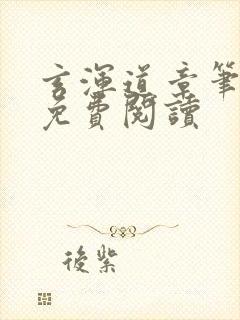 玄渾道章筆
免費閱讀
後紫